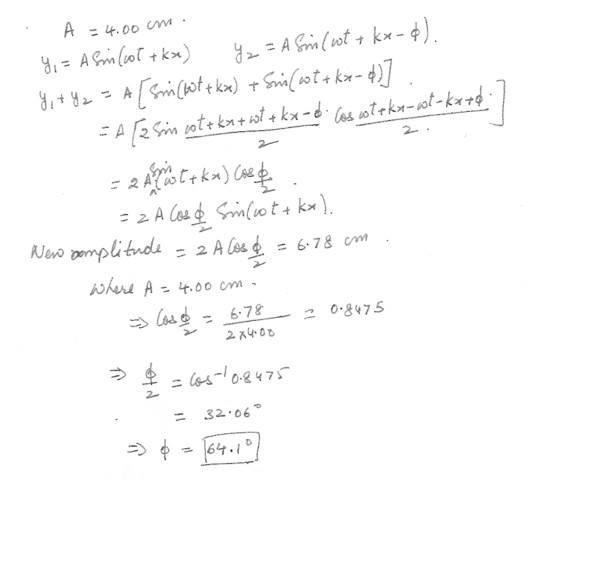 A = 4.00 cm.
y₁ = A Sin(ωt + kx)    y₂ = A Sin(ωt + kx - ϕ).
y₁ + y₂ = A [Sin(ωt + kx) + Sin(ωt + kx - ϕ)].
= A [2 Sin (ωt + kx + ωt + kx - ϕ)/2 . Cos (ωt + kx - ωt - kx + ϕ)/2.]
= 2 A Sin (ωt + kx) Cos ϕ/2.
= 2 A Cos ϕ/2 Sin(ωt + kx).
New amplitude = 2 A Cos ϕ/2 = 6.78 cm.
where A = 4.00 cm.
⇒ Cos ϕ/2 = 6.78/(2×4.00) = 0.8475
⇒ ϕ/2 = Cos⁻¹ 0.8475
= 32.06°
⇒ ϕ = 64.1°